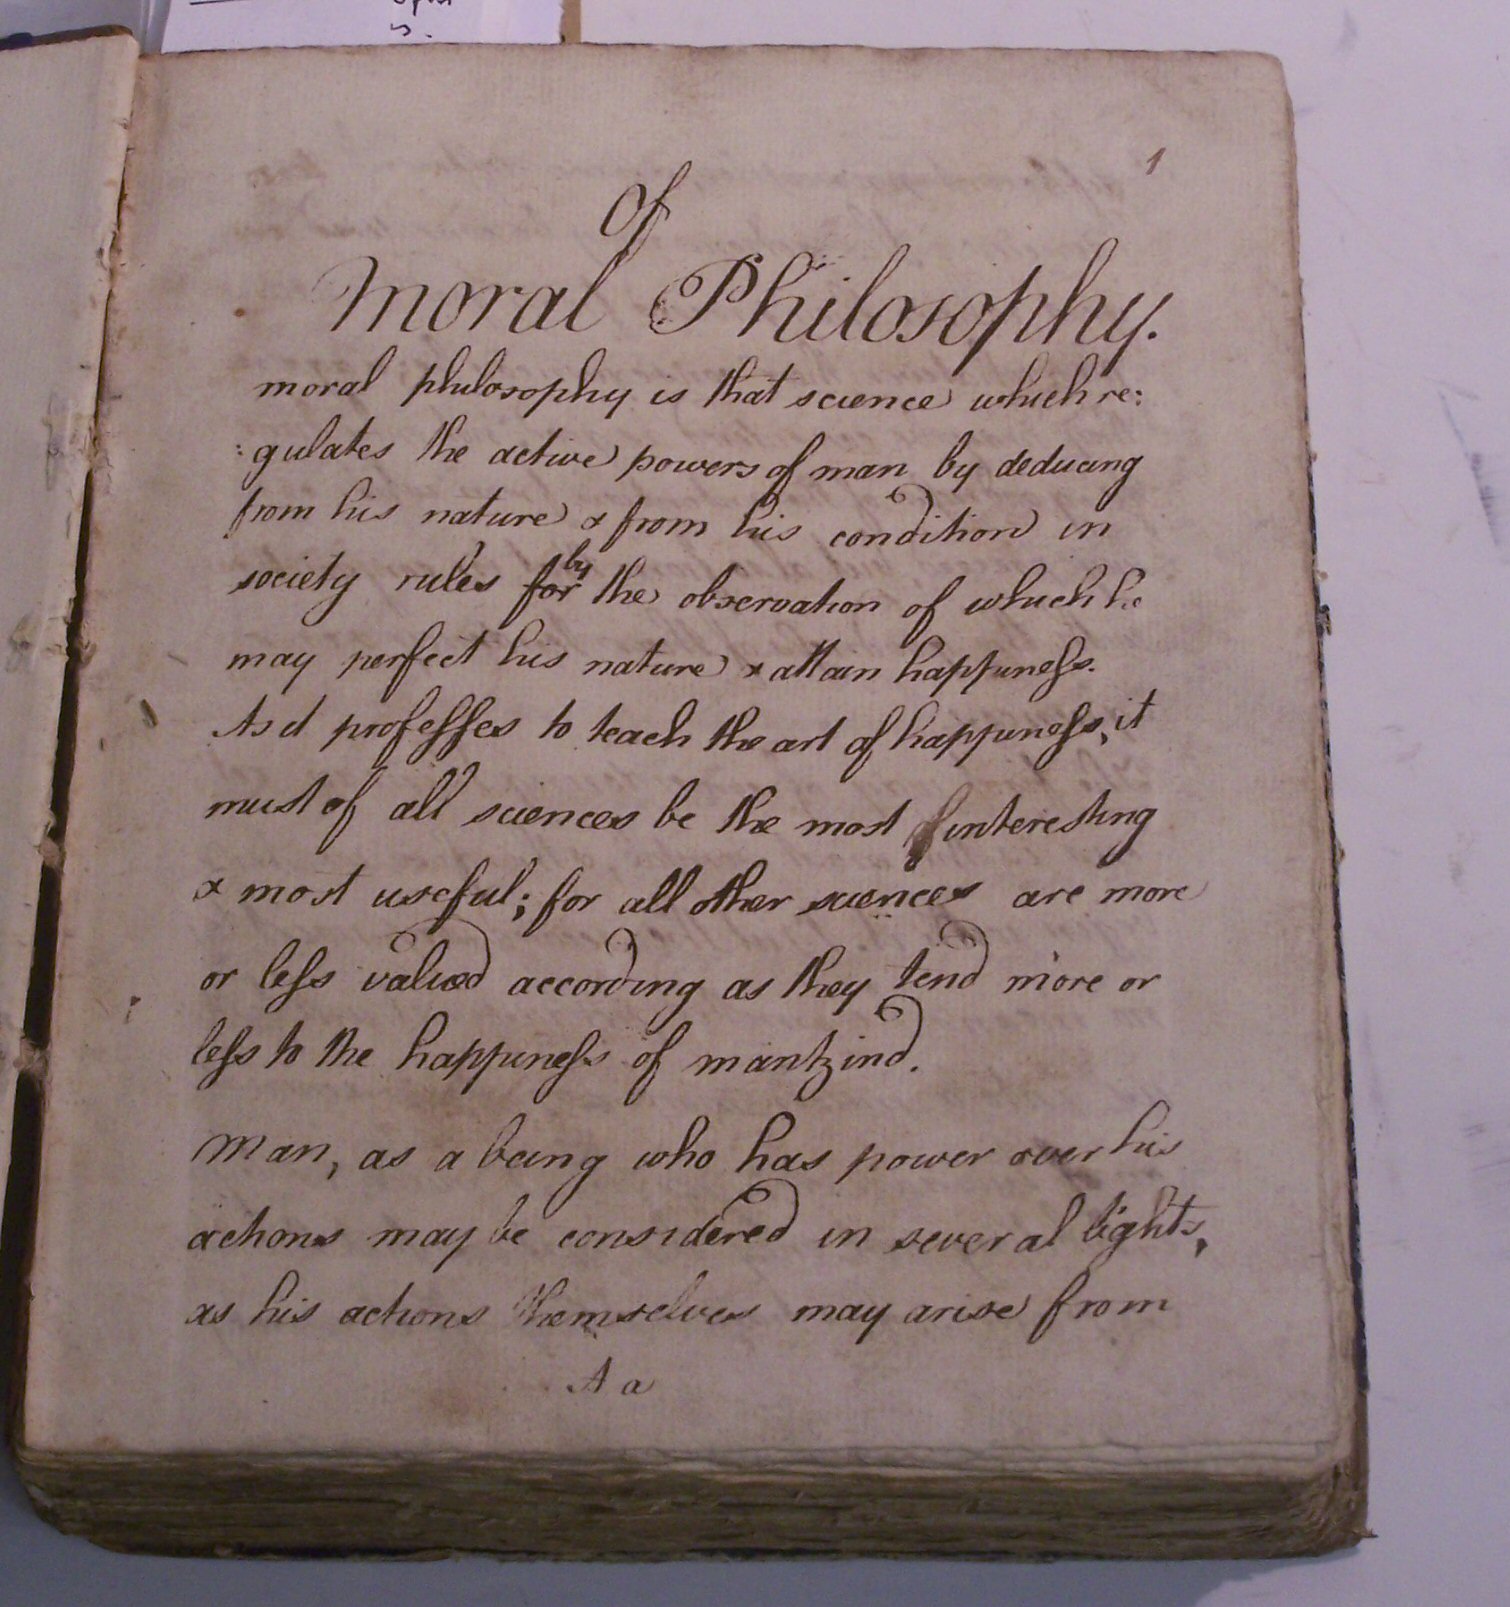 1
Of
Moral Philosophy.
moral philosophy is that science which re:
:gulates the active powers of man by deducing
from his nature & from his condition in
society rules for by the observation of which he
may perfect his nature & attain happiness.
As it professes to teach the art of happiness, it
must of all sciences be the most interesting
& most useful; for all other sciences are more
or less valued according as they tend more or
less to the happiness of mankind.
Man, as a being who has power over his
actions may be considered in several lights,
as his actions themselves may arise from
A a